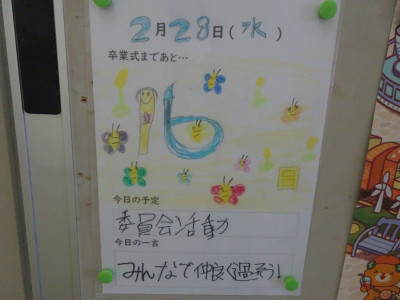 2月28日(水)
卒業式まであと…
16日
今日の予定
委員会活動
今日の一言
みんなで仲良く過そう!